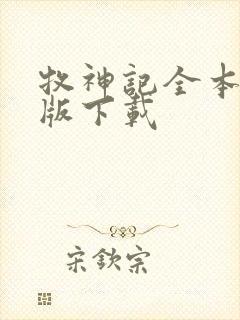 牧神記全本
版下載
宋欽宗